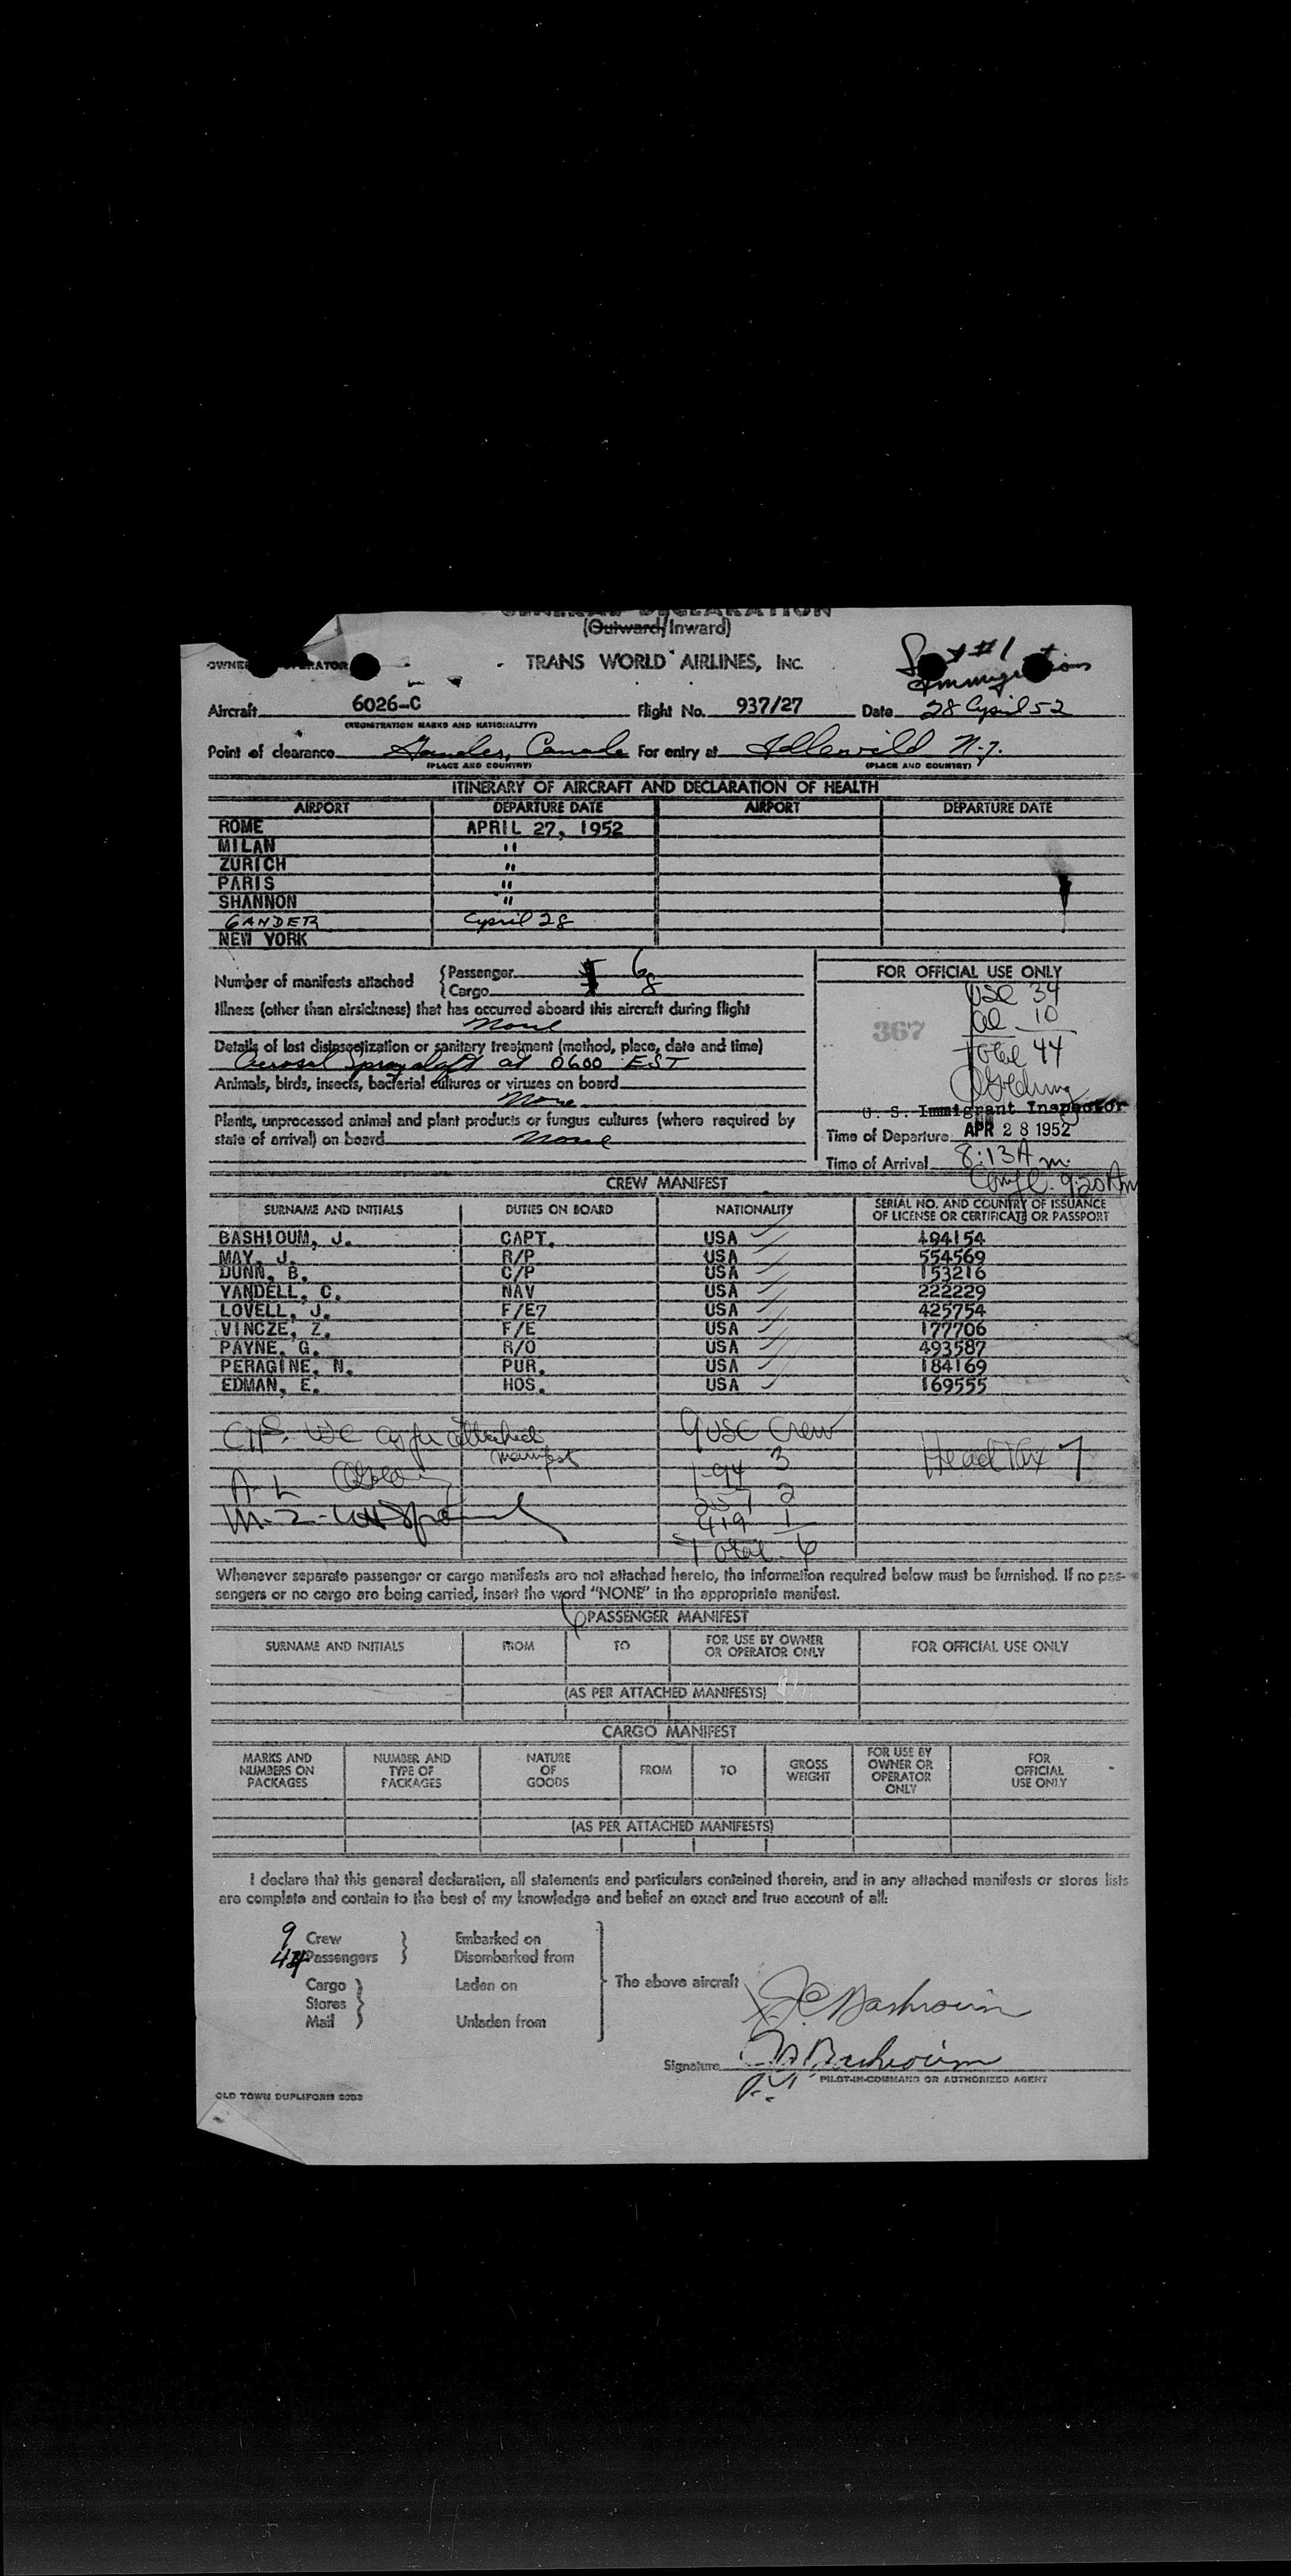 GENERAL DECLARATION
(Outward/Inward)
TRANS WORLD AIRLINES, INC.
#1
Immigration
Aircraft 6026-C Flight No. 937/27 Date 28 April 52
(REGISTRATION MARKS AND NATIONALITY)
Point of clearance Gander, Canada For entry at Idlewild N.Y.
(PLACE AND COUNTRY) (PLACE AND COUNTRY)
ITINERARY OF AIRCRAFT AND DECLARATION OF HEALTH
AIRPORT DEPARTURE DATE AIRPORT DEPARTURE DATE
ROME APRIL 27, 1952
MILAN "
ZURICH "
PARIS "
SHANNON "
GANDER April 28
NEW YORK
Number of manifests attached { Passenger 6
{ Cargo 8
Illness (other than airsickness) that has occurred aboard this aircraft during flight
None
Details of last disinsectization or sanitary treatment (method, place, date and time)
Aerosol Spray aloft at 0600 EST
Animals, birds, insects, bacterial cultures or viruses on board
None
Plants, unprocessed animal and plant products or fungus cultures (where required by
state of arrival) on board None
FOR OFFICIAL USE ONLY
USC 34
al 10
367
Total 44
U. S. Immigrant Inspector
Time of Departure APR 28 1952
Time of Arrival 8:13 A m.
Compl. 9:20 Am
CREW MANIFEST
SURNAME AND INITIALS DUTIES ON BOARD NATIONALITY SERIAL NO. AND COUNTRY OF ISSUANCE
OF LICENSE OR CERTIFICATE OR PASSPORT
BASHIOUM, J. CAPT. USA 494154
MAY, J. R/P USA 554569
DUNN, B. C/P USA 153216
YANDELL, C. NAV USA 222229
LOVELL, J. F/E7 USA 425754
VINCZE, Z. F/E USA 177706
PAYNE, G. R/O USA 493587
PERAGINE, N. PUR. USA 184169
EDMAN, E. HOS. USA 169555
as per attached 9 USC Crew
manifest
I-94 3 Head Tax 7
257 2
419 1
Total 6
Whenever separate passenger or cargo manifests are not attached hereto, the information required below must be furnished. If no pas-
sengers or no cargo are being carried, insert the word "NONE" in the appropriate manifest.
6 PASSENGER MANIFEST
SURNAME AND INITIALS FROM TO FOR USE BY OWNER
OR OPERATOR ONLY FOR OFFICIAL USE ONLY
(AS PER ATTACHED MANIFESTS)
CARGO MANIFEST
MARKS AND
NUMBERS ON
PACKAGES NUMBER AND
TYPE OF
PACKAGES NATURE
OF
GOODS FROM TO GROSS
WEIGHT FOR USE BY
OWNER OR
OPERATOR
ONLY FOR
OFFICIAL
USE ONLY
(AS PER ATTACHED MANIFESTS)
I declare that this general declaration, all statements and particulars contained therein, and in any attached manifests or stores lists
are complete and contain to the best of my knowledge and belief an exact and true account of all:
9 Crew Embarked on
44 Passengers Disembarked from
Cargo Laden on The above aircraft
Stores
Mail Unladen from
J C Bashioum
Signature J C Bashioum
PILOT-IN-COMMAND OR AUTHORIZED AGENT
OLD TOWN DUPLIFORM